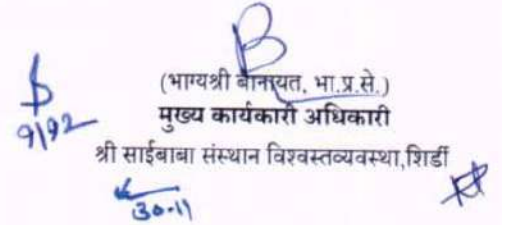 (भाग्यश्री बानायत, भा.प्र.से.)
मुख्य कार्यकारी अधिकारी
९/१२
श्री साईबाबा संस्थान विश्वस्तव्यवस्था,शिर्डी
३०.११